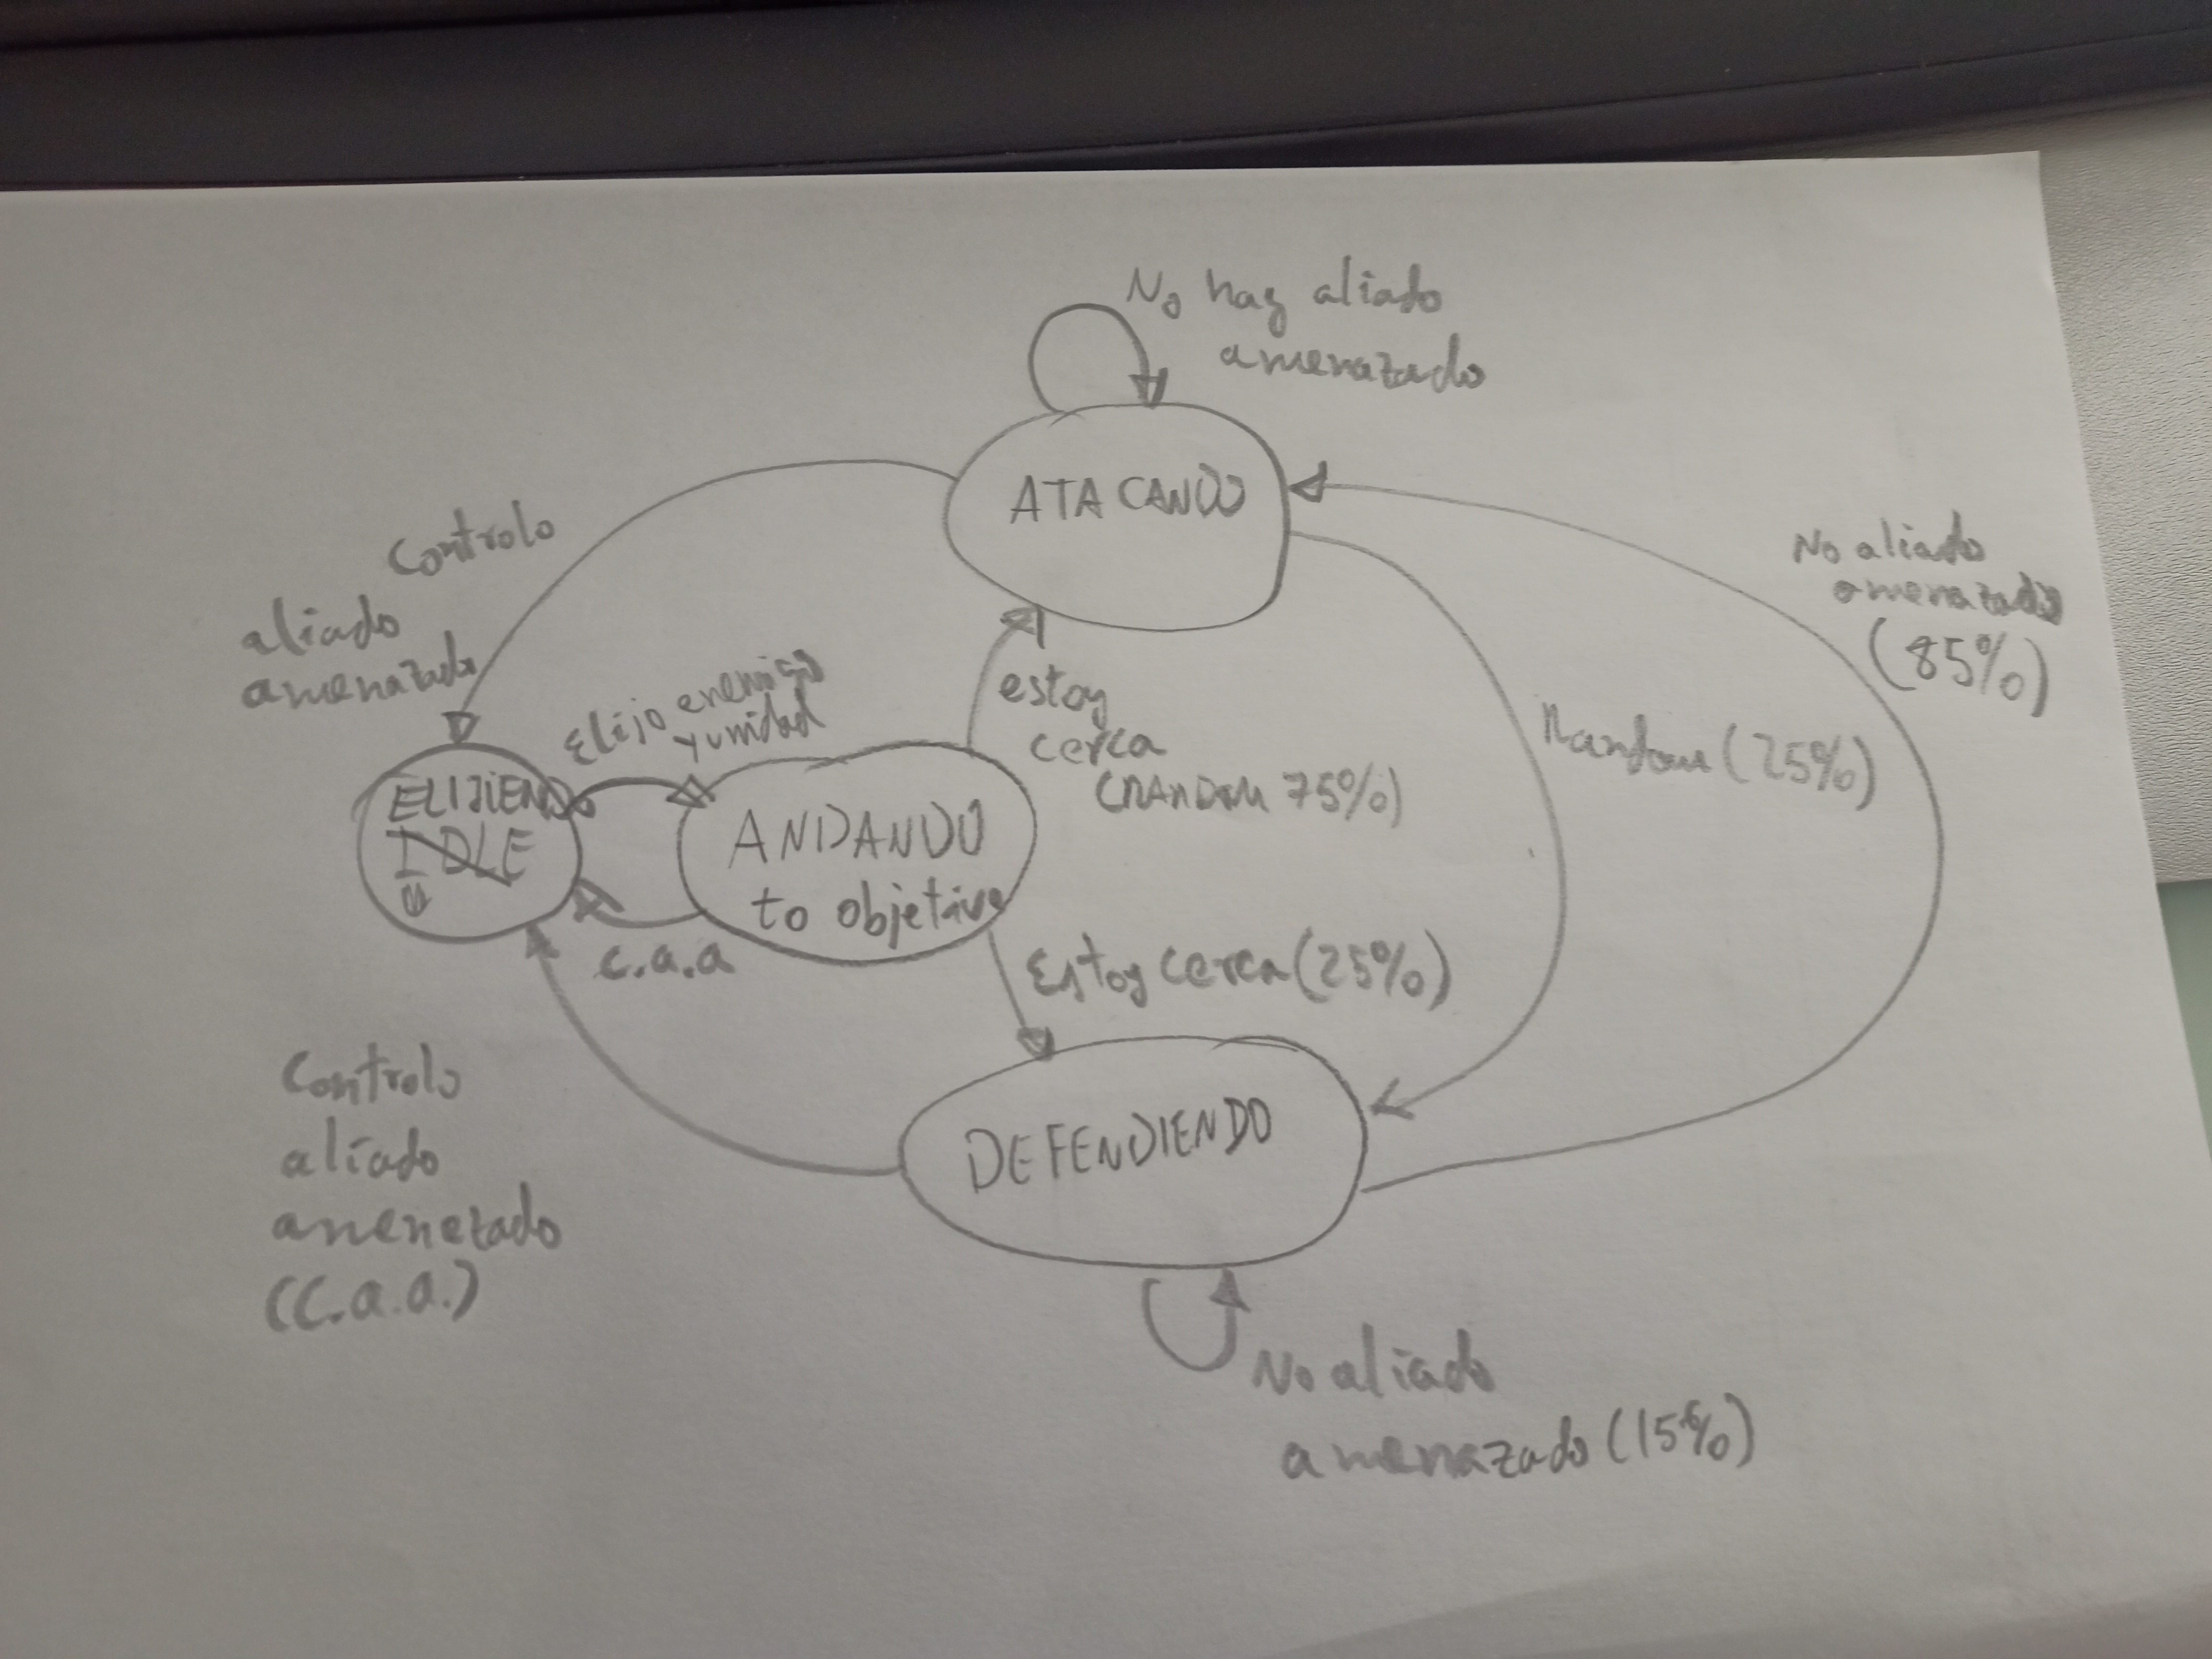 No hay aliado
amenazado
ATACANDO
Controlo
aliado
amenazado
No aliado
amenazado
(85%)
Elijo enemigo
y unidad
estoy
cerca
(RANDOM 75%)
Random (25%)
ELIJIENDO
IDLE
ANDANDO
to objetivo
c.a.a
Estoy cerca (25%)
Controlo
aliado
amenezado
(C.a.a.)
DEFENDIENDO
No aliado
amenazado (15%)